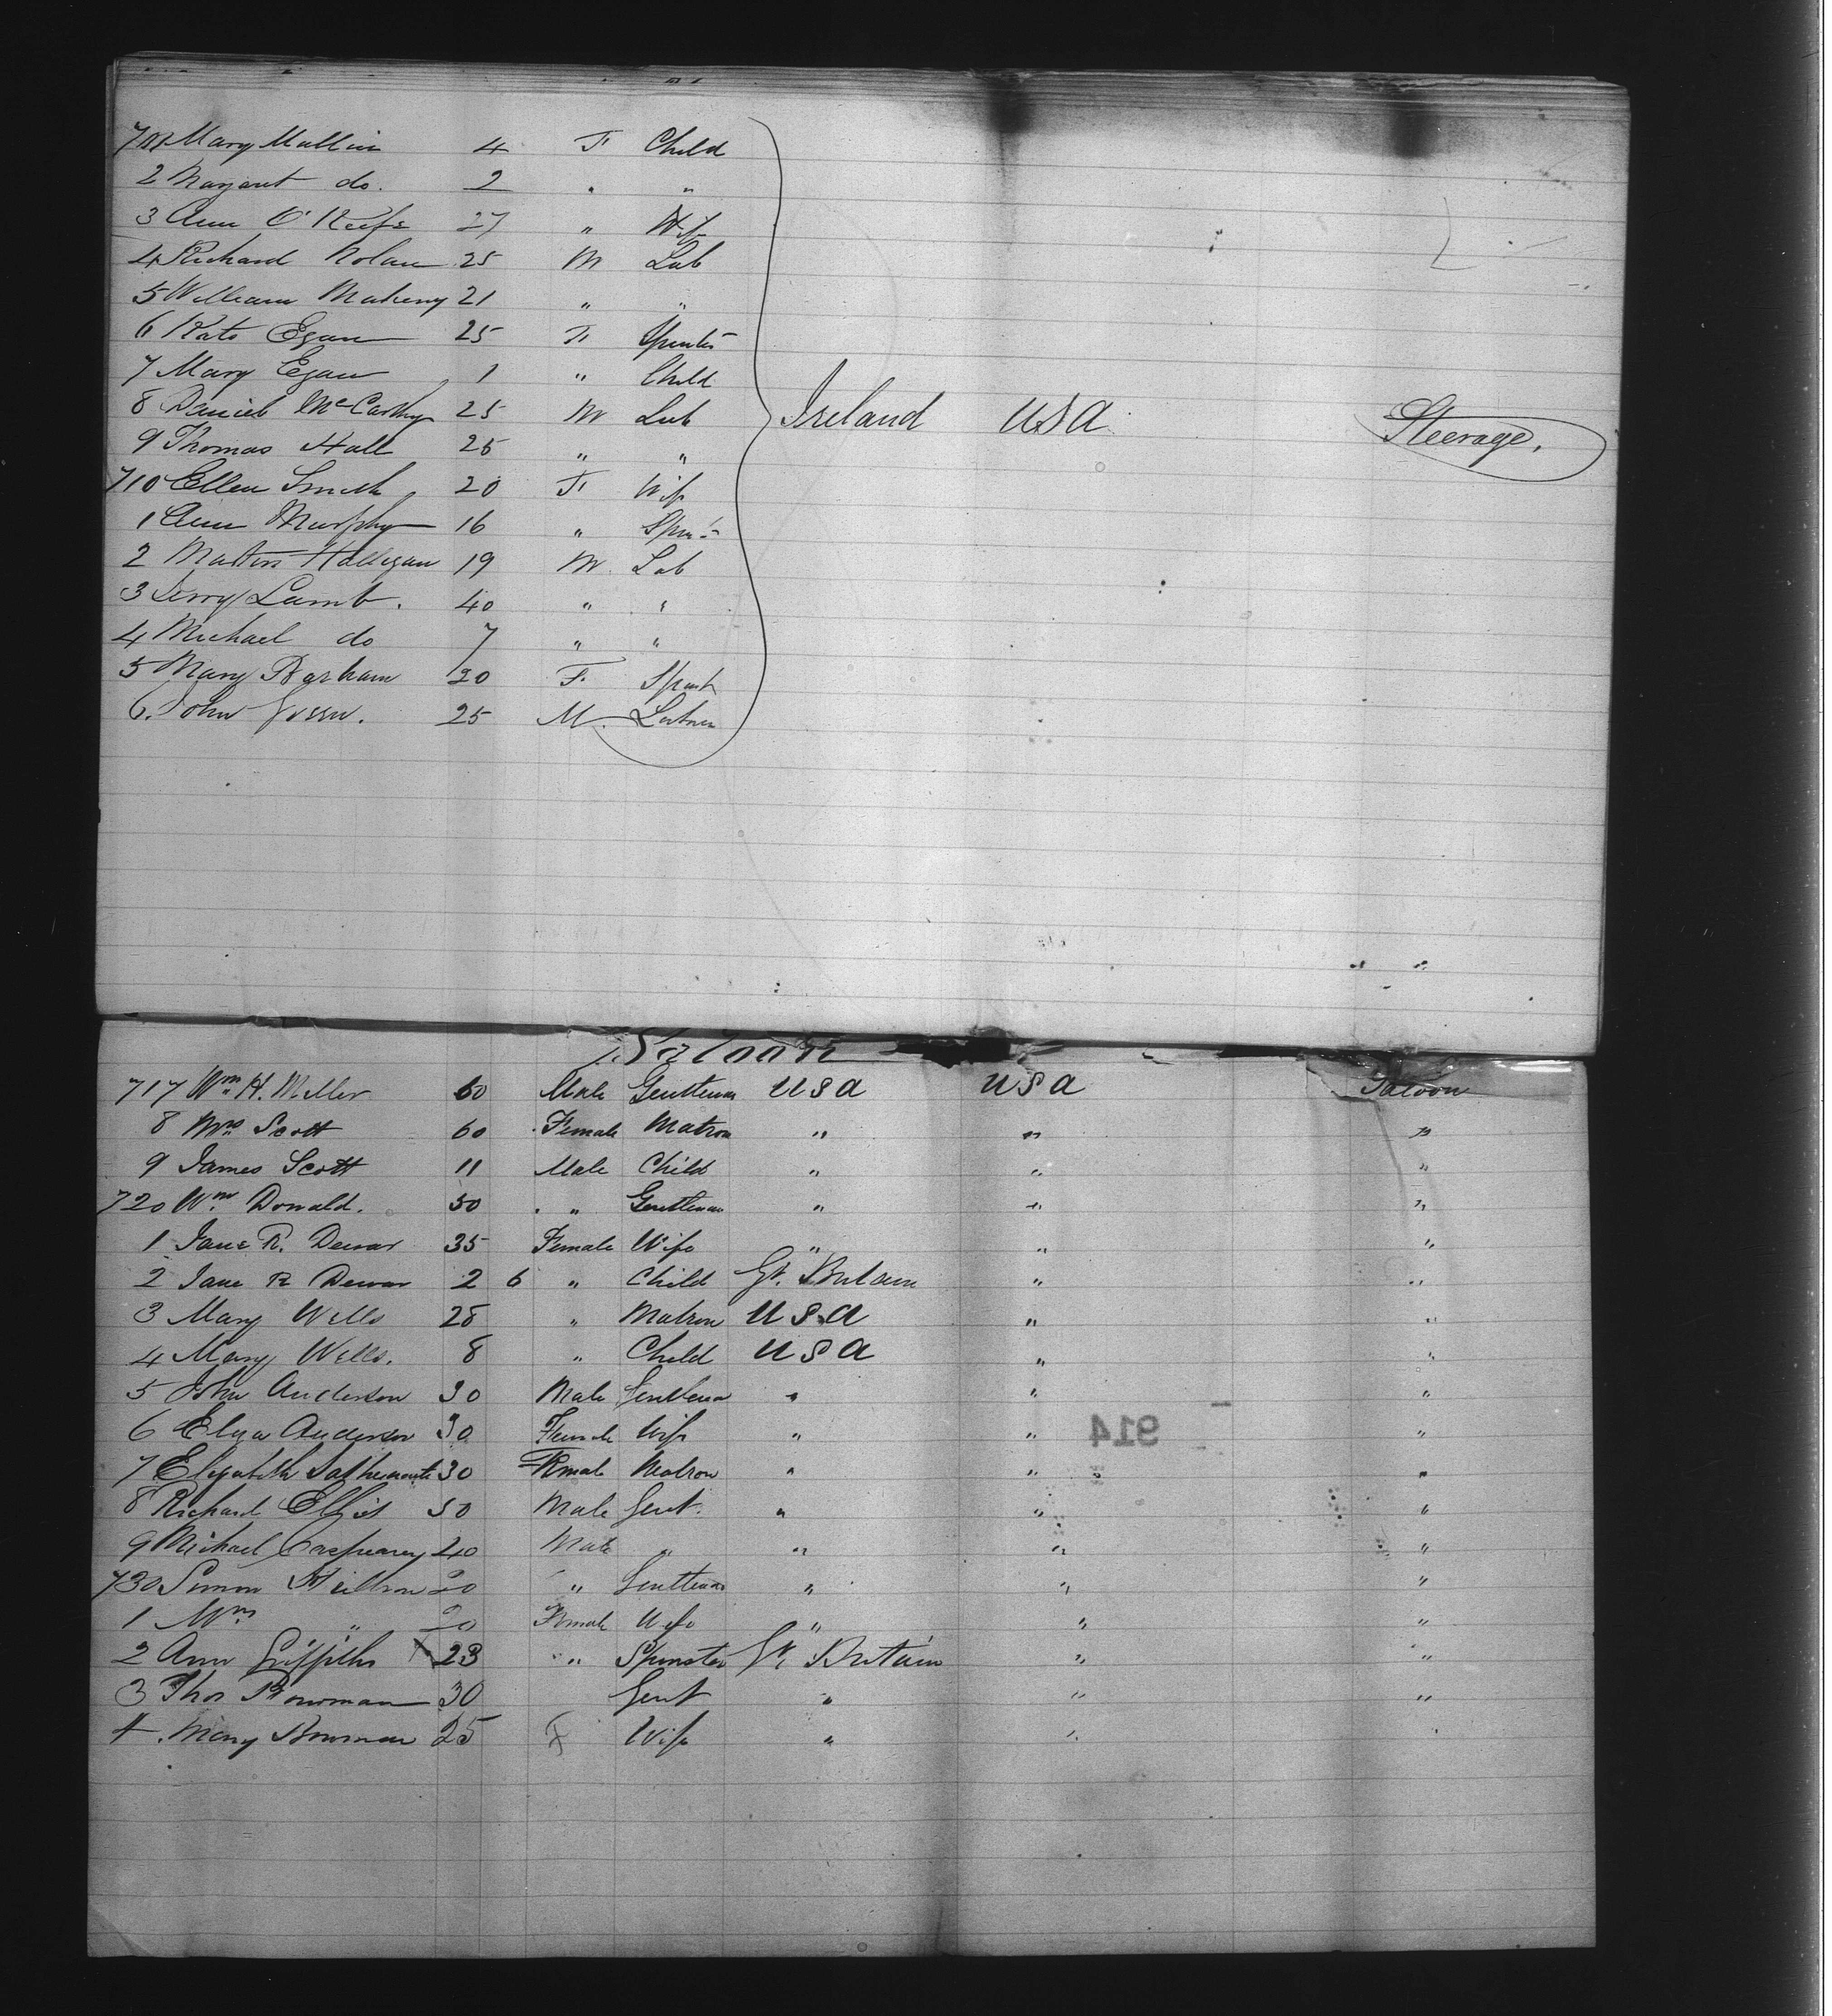 701 Mary Mullin 4 F Child
2 Margaret do. 2 " "
3 Ann O'Keefe 27 " Wife
4 Richard Nolan 25 M Lab
5 William Maheny 21 " "
6 Kate Egan 25 F Spinster
7 Mary Egan 1 " Child
8 Daniel McCarthy 25 M Lab Ireland USA Steerage.
9 Thomas Hall 25 " "
710 Ellen Smith 20 F Wife
1 Ann Murphy 16 " Spinr
2 Martin Halligan 19 M. Lab
3 Jerry Lamb. 40 " "
4 Michael do 7 " "
5 Mary 20 F. Spinst
6. John Green. 25 M.
Saloon
717 Wm H. Miller 60 Male Gentleman USA USA Saloon
8 Mrs Scott 60 Female Matron " " "
9 James Scott 11 Male Child " " "
720 Wm Donald. 50 " Gentleman " " "
1 Jane R. Dewar 35 Female Wife " " "
2 Jane R Dewar 2 6 " Child Gt. Britain " "
3 Mary Wells 28 " Matron USA " "
4 Mary Wells. 8 " Child USA " "
5 John Anderson 30 Male Gentleman " " "
6 Eliza Anderson 30 Female Wife " " "
7 Elizabeth 30 Female Matron " " "
8 Richard Ellis 50 Male Gent. " " "
9 Michael 40 Male " " " "
730 Simon 20 " Gentleman " " "
1 Mrs " 20 Female Wife " " "
2 Ann Griffiths 23 " Spinster Gt. Britain " "
3 Thos Bowman 30 Gent " " "
4. Mary Bowman 25 F Wife " " "
914